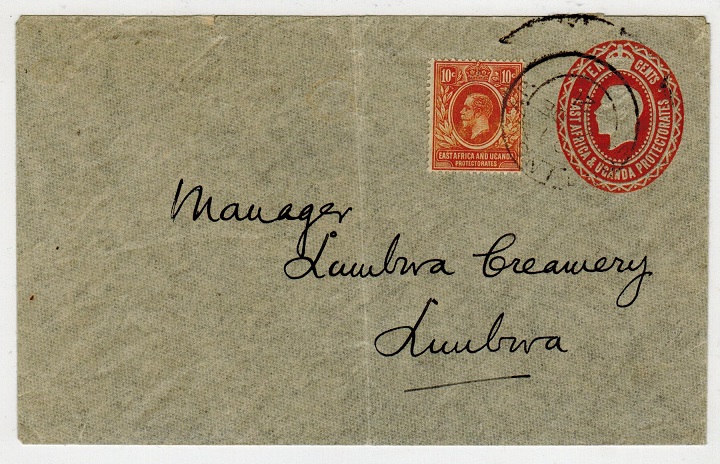 10c 10c
EAST AFRICA AND UGANDA
PROTECTORATES
TEN CENTS
EAST AFRICA & UGANDA PROTECTORATES
Manager
Lumbwa Creamery
Lumbwa